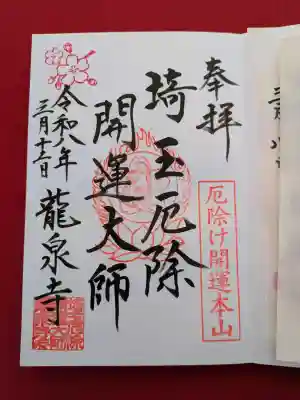 奉拝
厄除け開運本山
埼玉厄除
開運大師
令和八年
三月十三日
龍泉寺